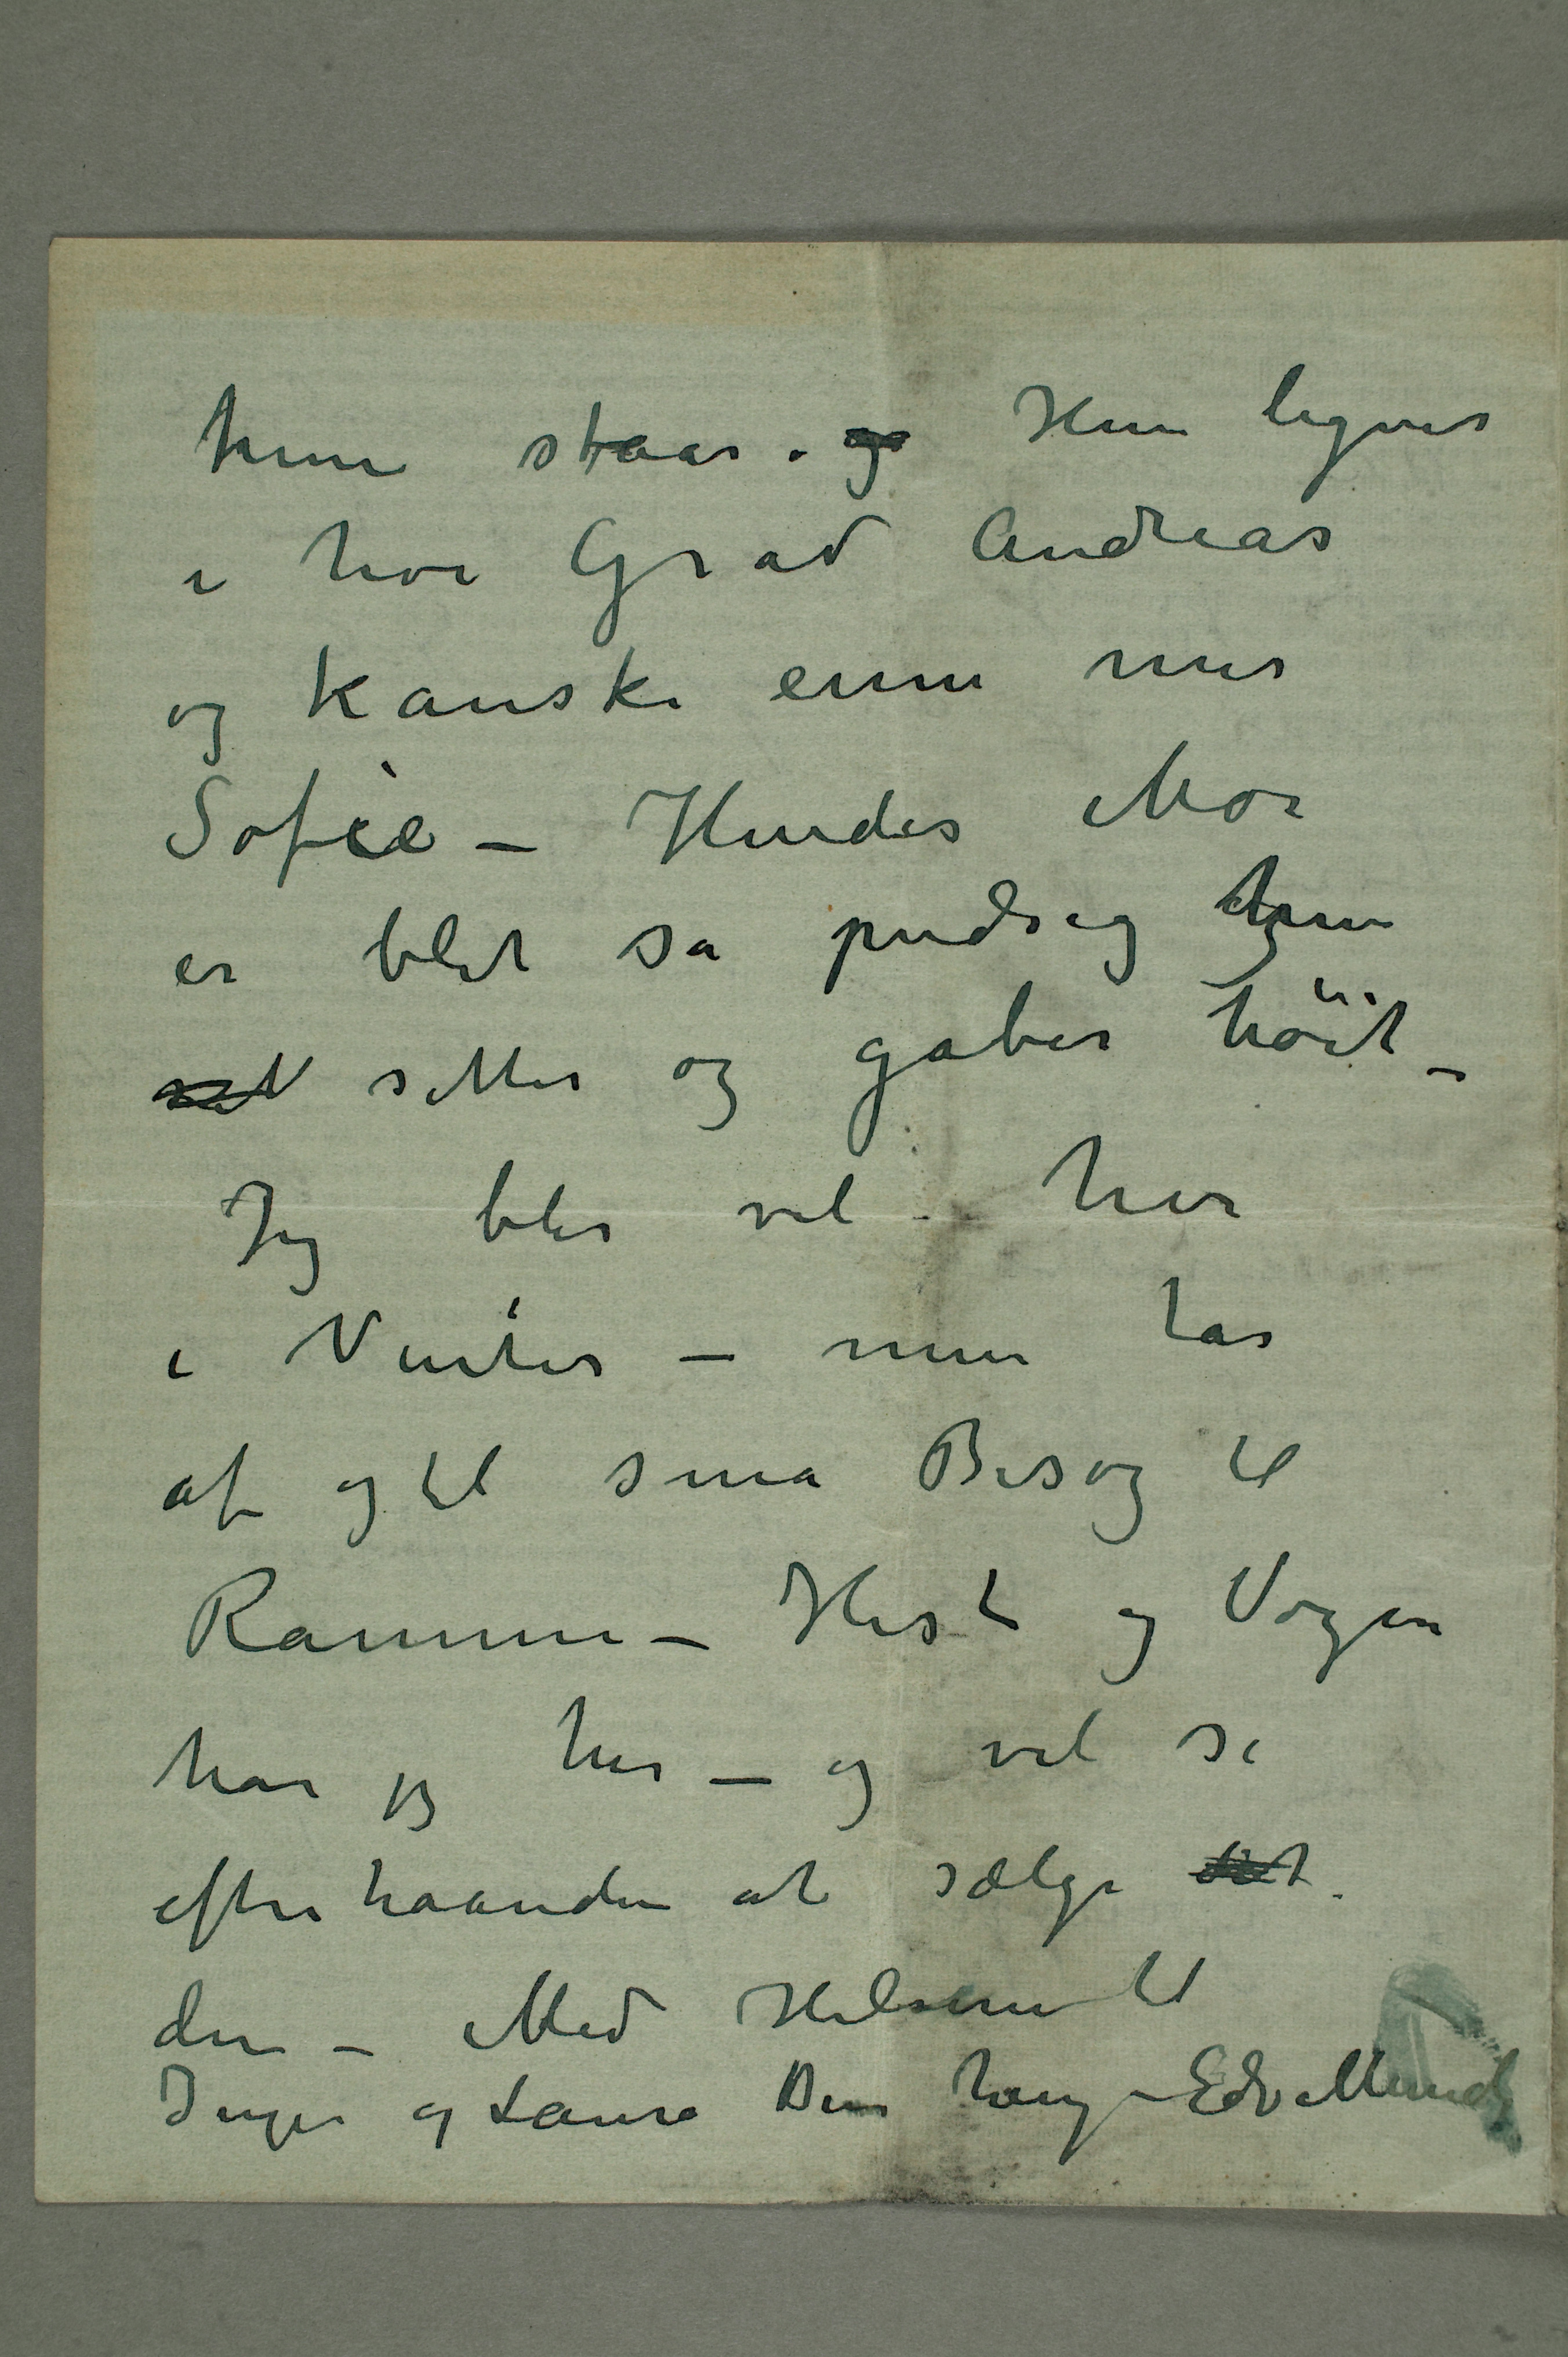 hun staar. og Hun ligner
i høi Grad Andreas
og kanske ennu mer
Sofie – Hendes Mor
er blit så pudsig hun
set sitter og gaber höit –
Jeg blir vel her
i Vinter – men tar
af og til små Besøg til
Ramme – Hest og Vogn
har jeg her – og vil se
efterhaanden at sælge det.
den – Med Hilsen til
Inger og Laura Din heng. Edv Munch